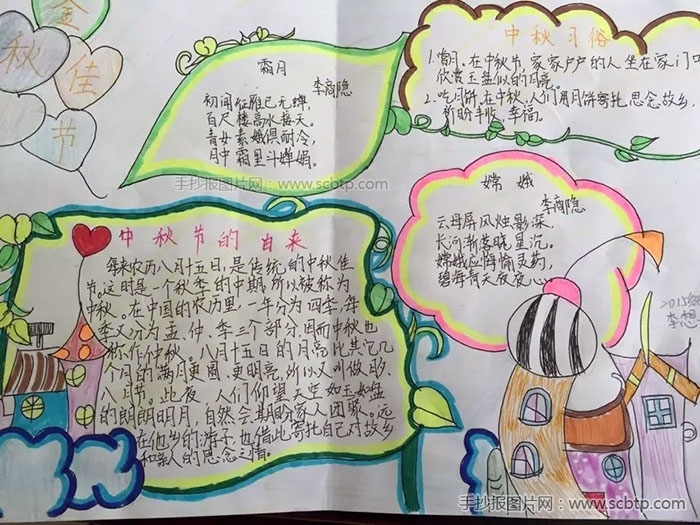 金
秋
佳
节
霜月
李商隐
初闻征雁已无蝉,
百尺楼高水接天。
青女素娥俱耐冷,
月中霜里斗婵娟。
中秋习俗
1.赏月,在中秋节,家家户户的人坐在家门口
欣赏玉盘似的月亮。
2.吃月饼,在中秋,人们用月饼寄托思念故乡,
祈盼丰收、幸福。
手抄报图片网:www.scbtp.com
嫦娥
李商隐
云母屏风烛影深,
长河渐落晓星沉。
嫦娥应悔偷灵药,
碧海青天夜夜心。
中秋节的由来
每年农历八月十五日,是传统的中秋佳
节。这时是一个秋季的中期,所以被称为
中秋。在中国的农历里,一年分为四季,每
季又分为孟、仲、季三个部分,因而中秋也
称作仲秋。八月十五日的月亮比其它几
个月的满月更圆、更明亮,所以又叫做月夕、
八月节。此夜,人们仰望天空如玉如盘
的朗朗明月,自然会期盼家人团聚。远
在他乡的游子,也借此寄托自己对故乡
和亲人的思念之情。
手抄报图片网:www.scbtp.com